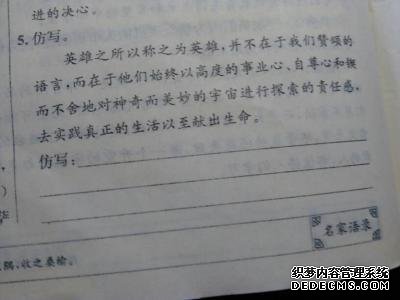 进的决心。
5.仿写。
英雄之所以称之为英雄,并不在于我们赞颂的
语言,而在于他们始终以高度的事业心、自尊心和锲
而不舍地对神奇而美妙的宇宙进行探索的责任感,
去实践真正的生活以至献出生命。
仿写:
名家语录
隅,收之桑榆。
内容来自
www.